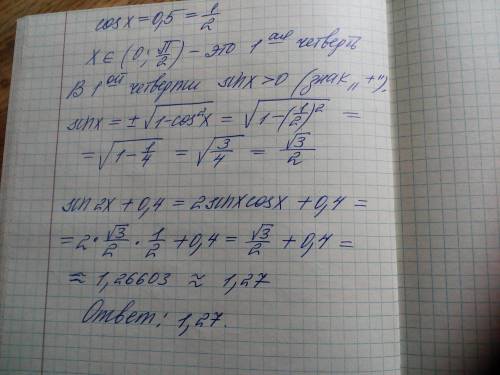 cosx = 0,5 = 1/2
x ∈ (0; π/2) - это 1 ая четверть
В 1 ой четверти sinx > 0 (знак „+"),
sinx = ± √(1-cos²x) = √(1-(1/2)²) =
= √(1-1/4) = √(3/4) = √3/2
sin2x + 0,4 = 2sinxcosx + 0,4 =
= 2 · √3/2 · 1/2 + 0,4 = √3/2 + 0,4 =
≈ 1,26603 ≈ 1,27
Ответ: 1,27.